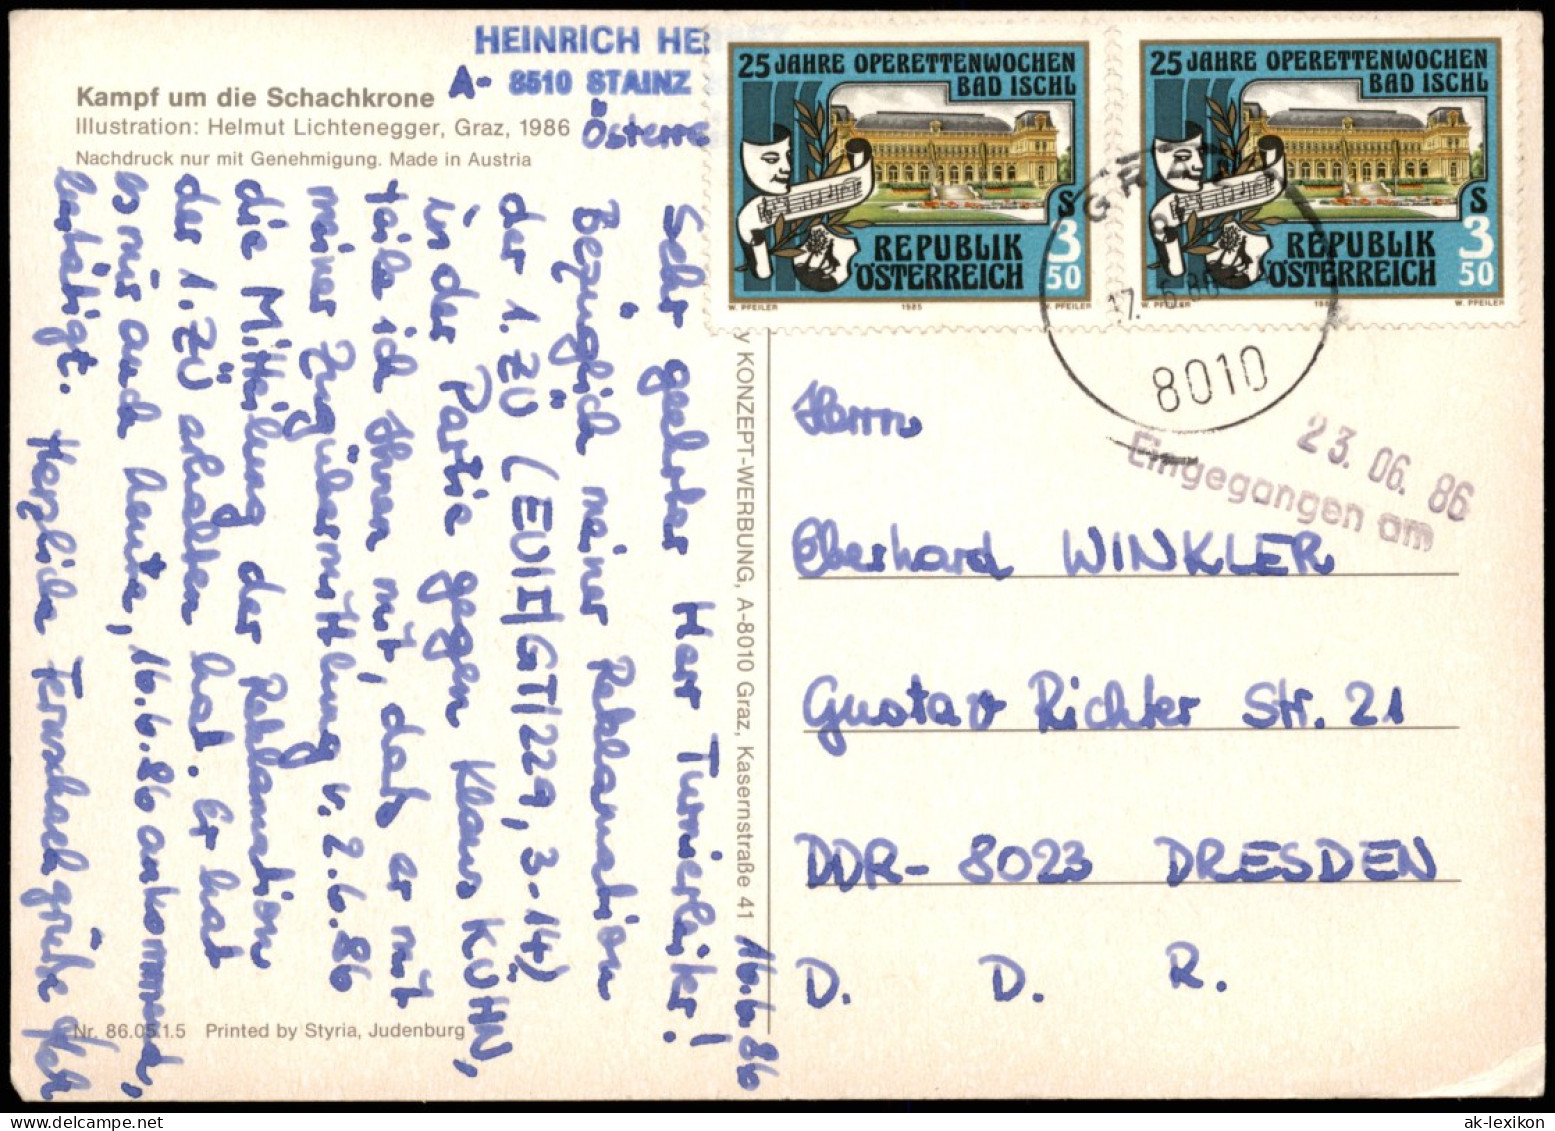 HEINRICH HE
A- 8510 STAINZ
Österre
Kampf um die Schachkrone
Illustration: Helmut Lichtenegger, Graz, 1986
Nachdruck nur mit Genehmigung. Made in Austria
16.6.86
Sehr geehrter Herr Turnierleiter!
Bezüglich meiner Reklamation
der 1. ZÜ (EU/M/GT/229, 3-14)
in der Partie gegen Klaus KÜHN,
teile ich Ihnen mit, daß er mit
meiner Zugübermittlung v. 2.6.86
die Mitteilung der Reklamation
der 1. ZÜ erhalten hat. Er hat
es mir auch heute, 16.6.86 ankommend,
bestätigt. Herzliche Fernschachgrüße
Nr. 86.05.1.5 Printed by Styria, Judenburg
y KONZEPT-WERBUNG, A-8010 Graz, Kasernstraße 41
25 JAHRE OPERETTENWOCHEN
BAD ISCHL
S
3
50
REPUBLIK
ÖSTERREICH
W. PFEILER 1985 W. PFEILER
25 JAHRE OPERETTENWOCHEN
BAD ISCHL
S
3
50
REPUBLIK
ÖSTERREICH
W. PFEILER 1985 W. PFEILER
GRAZ
17. 6. 86
8010
23. 06. 86
Eingegangen am
Herrn
Eberhard WINKLER
Gustav Richter Str. 21
DDR- 8023 DRESDEN
D. D. R.
ak-lexikon.com